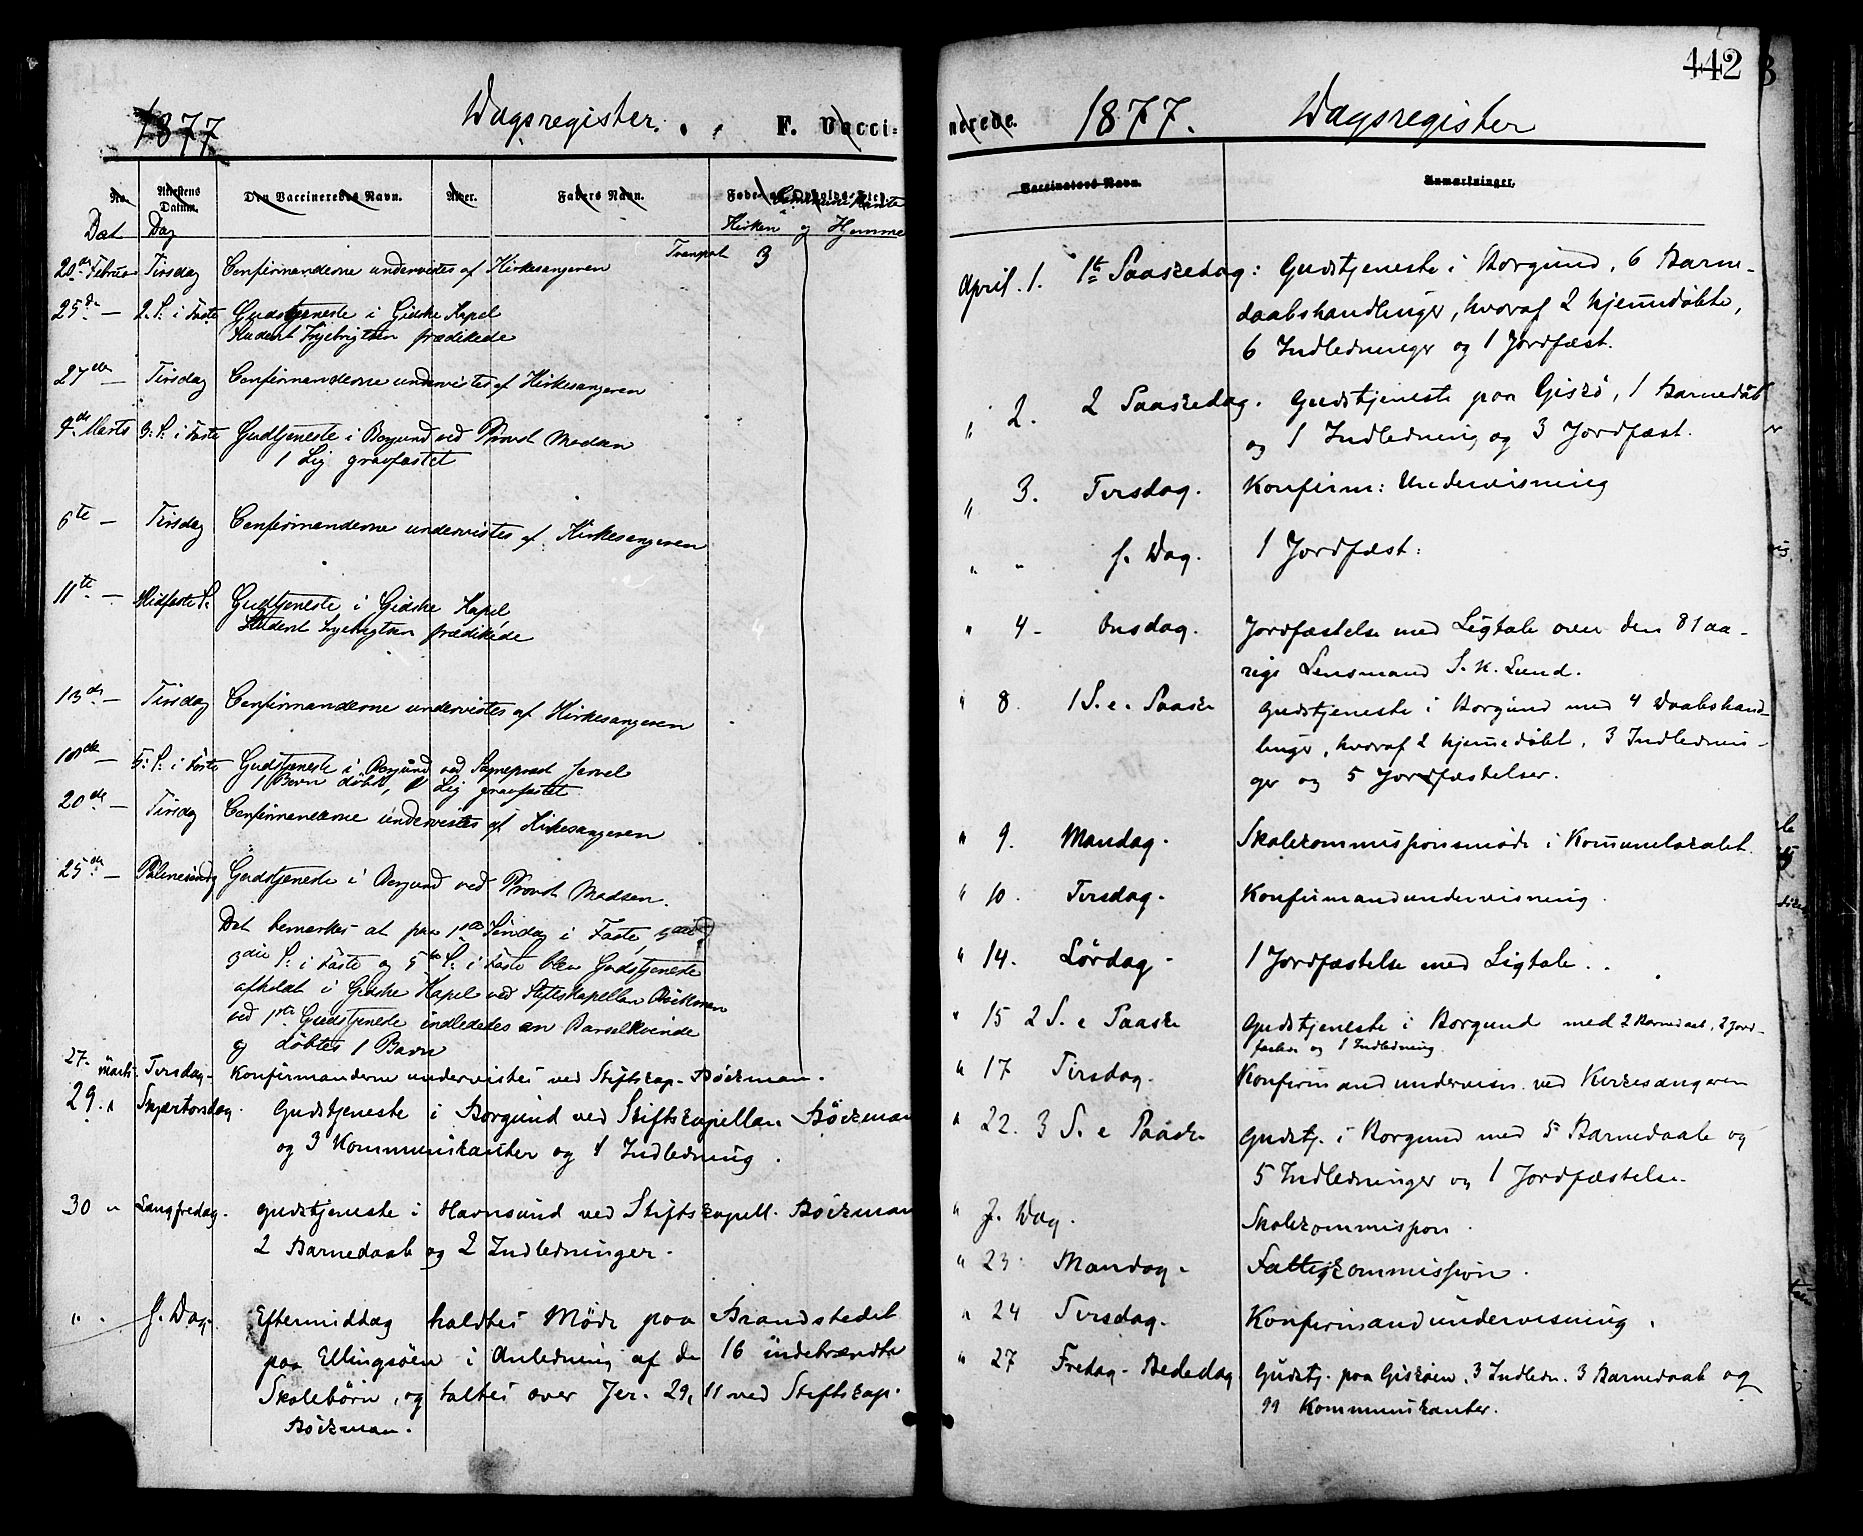 1877 Dagsregister. F. Vacci-
No. Attestens Datum. Den Vaccineredes Navn. Alder. Faders Navn. Føde- og Opholds-Sted.
Dat Dag Kirken og Hjemme
20de Februar Tirsdag Confirmanderne undervistes af Kirkesangeren Transport 3
25de — 2. S. i Faste Gudstjeneste i Gidske Kapel
Student prædikede
27de — Tirsdag Confirmanderne undervistes af Kirkesangeren
4de Marts 3: S: i Faste Gudtjeneste i Borgund ved Provst Madsen
1 Lig gravfæstet
6te — Tirsdag Confirmanderne undervistes af: Kirkesangeren
11te — Midfaste S: Gudtjeneste i Gidske Kapel
Student prædikede
13de — Tirsdag Confirmanderne undervistes af Kirkesangeren
18de — 5: S: i Faste Gudstjeneste i Borgund ved Sognepræst
1 Barn døbt, 1 Lig gravfæstet
20de — Tirsdag Confirmanderne undervistes af Kirkesangeren
25de — Palmesøndg Gudstjeneste i Borgund ved Provst Madsen.
Det bemærkes at paa 1ste Søndag i Faste,
3die S: i Faste og 5te S: i Faste blev Gudstjeneste
afholdt i Gidske Kapel ved Stiftskapellan Böckman
ved 1ste Gudstjeneste indledtes en Barselkvinde
og døbtes 1 Barn
27. marts. Tirsdag. Konfirmanderne undervistes ved Stiftskap. Böckman.
29. " Skjærtorsdag. Gudstjeneste i Borgund ved Stiftskapellan Böckman
og 3 Kommunikanter og 1 Indledning.
30 " Langfredag. Gudstjeneste i Havnsund ved Stiftskapell. Böckman
2 Barnedaab og 2 Indledninger.
" . S. Dag. Eftermiddag holdtes Möde paa Brandstedet
paa Ellingsöen i Anledning af de 16 indebrændte
Skolebörn, og taltes over Jer. 29, 11 ved Stiftskap.
Böckman.
442
nerede. 1877. Dagsregister
Vaccinators Navn. Anmærkninger.
April. 1. 1te Paaskedag: Gudstjeneste i Borgund, 6 Barne-
daabshandlinger, hvoraf 2 hjemdöbte,
6 Indledninger og 1 Jordfæst.
" 2. 2 Paaskedag. Gudstjeneste paa Giskö, 1 Barnedåb
og 1 Indledning og 3 Jordfæst.
" 3. Tirsdag. Konfirm: Undervisning
" " S. Dag. 1 Jordfæst:
" 4- Onsdag. Jordfæstelse med Ligtale over den 81 aa-
rige Lensmand S. K. Lund.
" 8. 1 S. e. Paaske Gudstjeneste i Borgund med 4 Daabshand-
linger, hvoraf 2 hjemmedöbt, 3 Indlednin-
ger og 5 Jordfæstelser.
" 9. Mandag. Skolekommissionsmöde i Kommunelokalet.
" 10. Tirsdag. Konfirmandundervisning.
" 14. Lördag. 1 Jordfæstelse med Ligtale.
" 15 2 S. e Paaske Gudstjeneste i Borgund med 2 Barnedaab, 2 Jord-
fæstelse og 1 Indledning
" 17 Tirsdag. Konfirmandundervisn. ved Kirkesangeren
" 22. 3 S. e Paaske Gudstj. i Borgund med 5 Barnedaab og
5 Indledninger og 1 Jordfæstelse.
" S. Dag. Skolekommission.
" 23 Mandag. Fattigkommission.
" 24 Tirsdag. Konfirmandundervisning.
" 27 Fredag. Bededag Gudstj. paa Gisköen, 3 Indledn. 3 Barnedaab og
11 Kommunikanter.